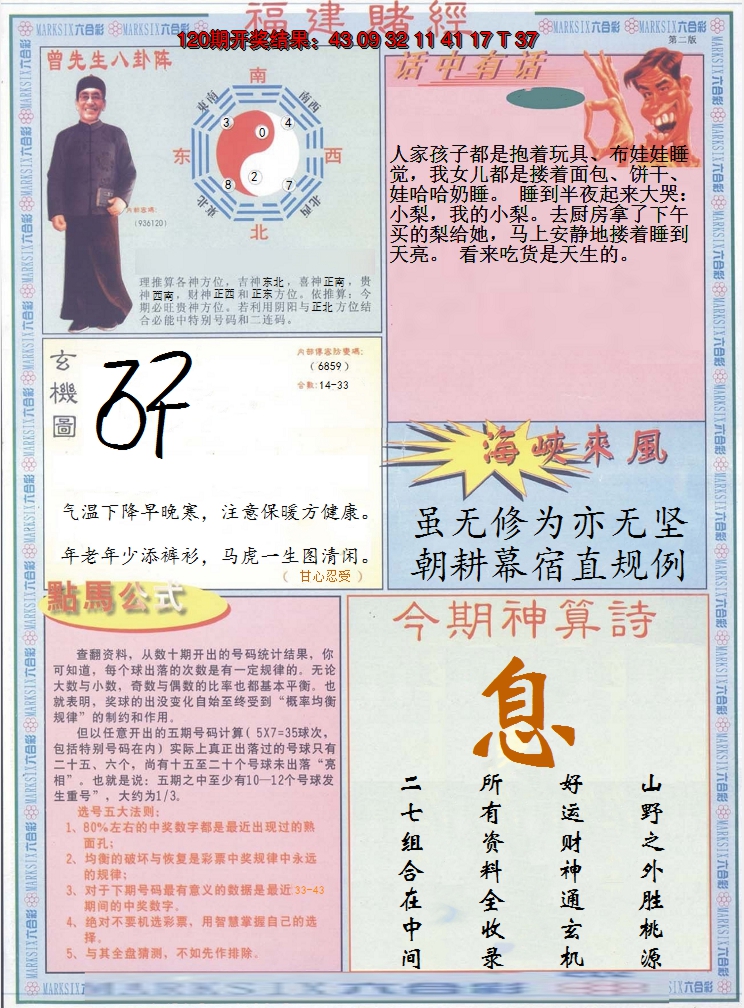 福建賭經
120期开奖结果：43 09 32 11 41 17 T 37
第二版
MARKSIX六合彩
曾先生八卦阵
南
東南
南西
3
0
4
东
西
8
2
7
東北
北西
北
内部密碼：
（936120）
理推算各神方位，吉神东北，喜神正南，贵
神西南，财神正西和正东方位。依推算：今
期必旺贵神方位。若利用阴阳与正北方位结
合必能中特别号码和二连码。
话中有话
人家孩子都是抱着玩具、布娃娃睡
觉，我女儿都是搂着面包、饼干、
娃哈哈奶睡。 睡到半夜起来大哭：
小梨，我的小梨。去厨房拿了下午
买的梨给她，马上安静地搂着睡到
天亮。 看来吃货是天生的。
玄機圖
内部傳密防變碼：
（6859）
合數:14-33
气温下降早晚寒，注意保暖方健康。
年老年少添裤衫，马虎一生图清闲。
（ 甘心忍受 ）
海峽來風
虽无修为亦无坚
朝耕幕宿直规例
點馬公式
查翻资料，从数十期开出的号码统计结果，你
可知道，每个球出落的次数是有一定规律的。无论
大数与小数，奇数与偶数的比率也都基本平衡。也
就表明，奖球的出没变化自始至终受到“概率均衡
规律”的制约和作用。
但以任意开出的五期号码计算（5X7=35球次，
包括特别号码在内）实际上真正出落过的号球只有
二十五、六个，尚有十五至二十个号球未出落“亮
相”。也就是说：五期之中至少有10—12个号球发
生重号”，大约为1/3。
选号五大法则：
1、80%左右的中奖数字都是最近出现过的熟
面孔；
2、均衡的破坏与恢复是彩票中奖规律中永远
的规律；
3、对于下期号码最有意义的数据是最近33-43
期间的中奖数字。
4、绝对不要机选彩票，用智慧掌握自己的选
择。
5、与其全盘猜测，不如先作排除。
今期神算詩
息
山野之外胜桃源
好运财神通玄机
所有资料全收录
二七组合在中间